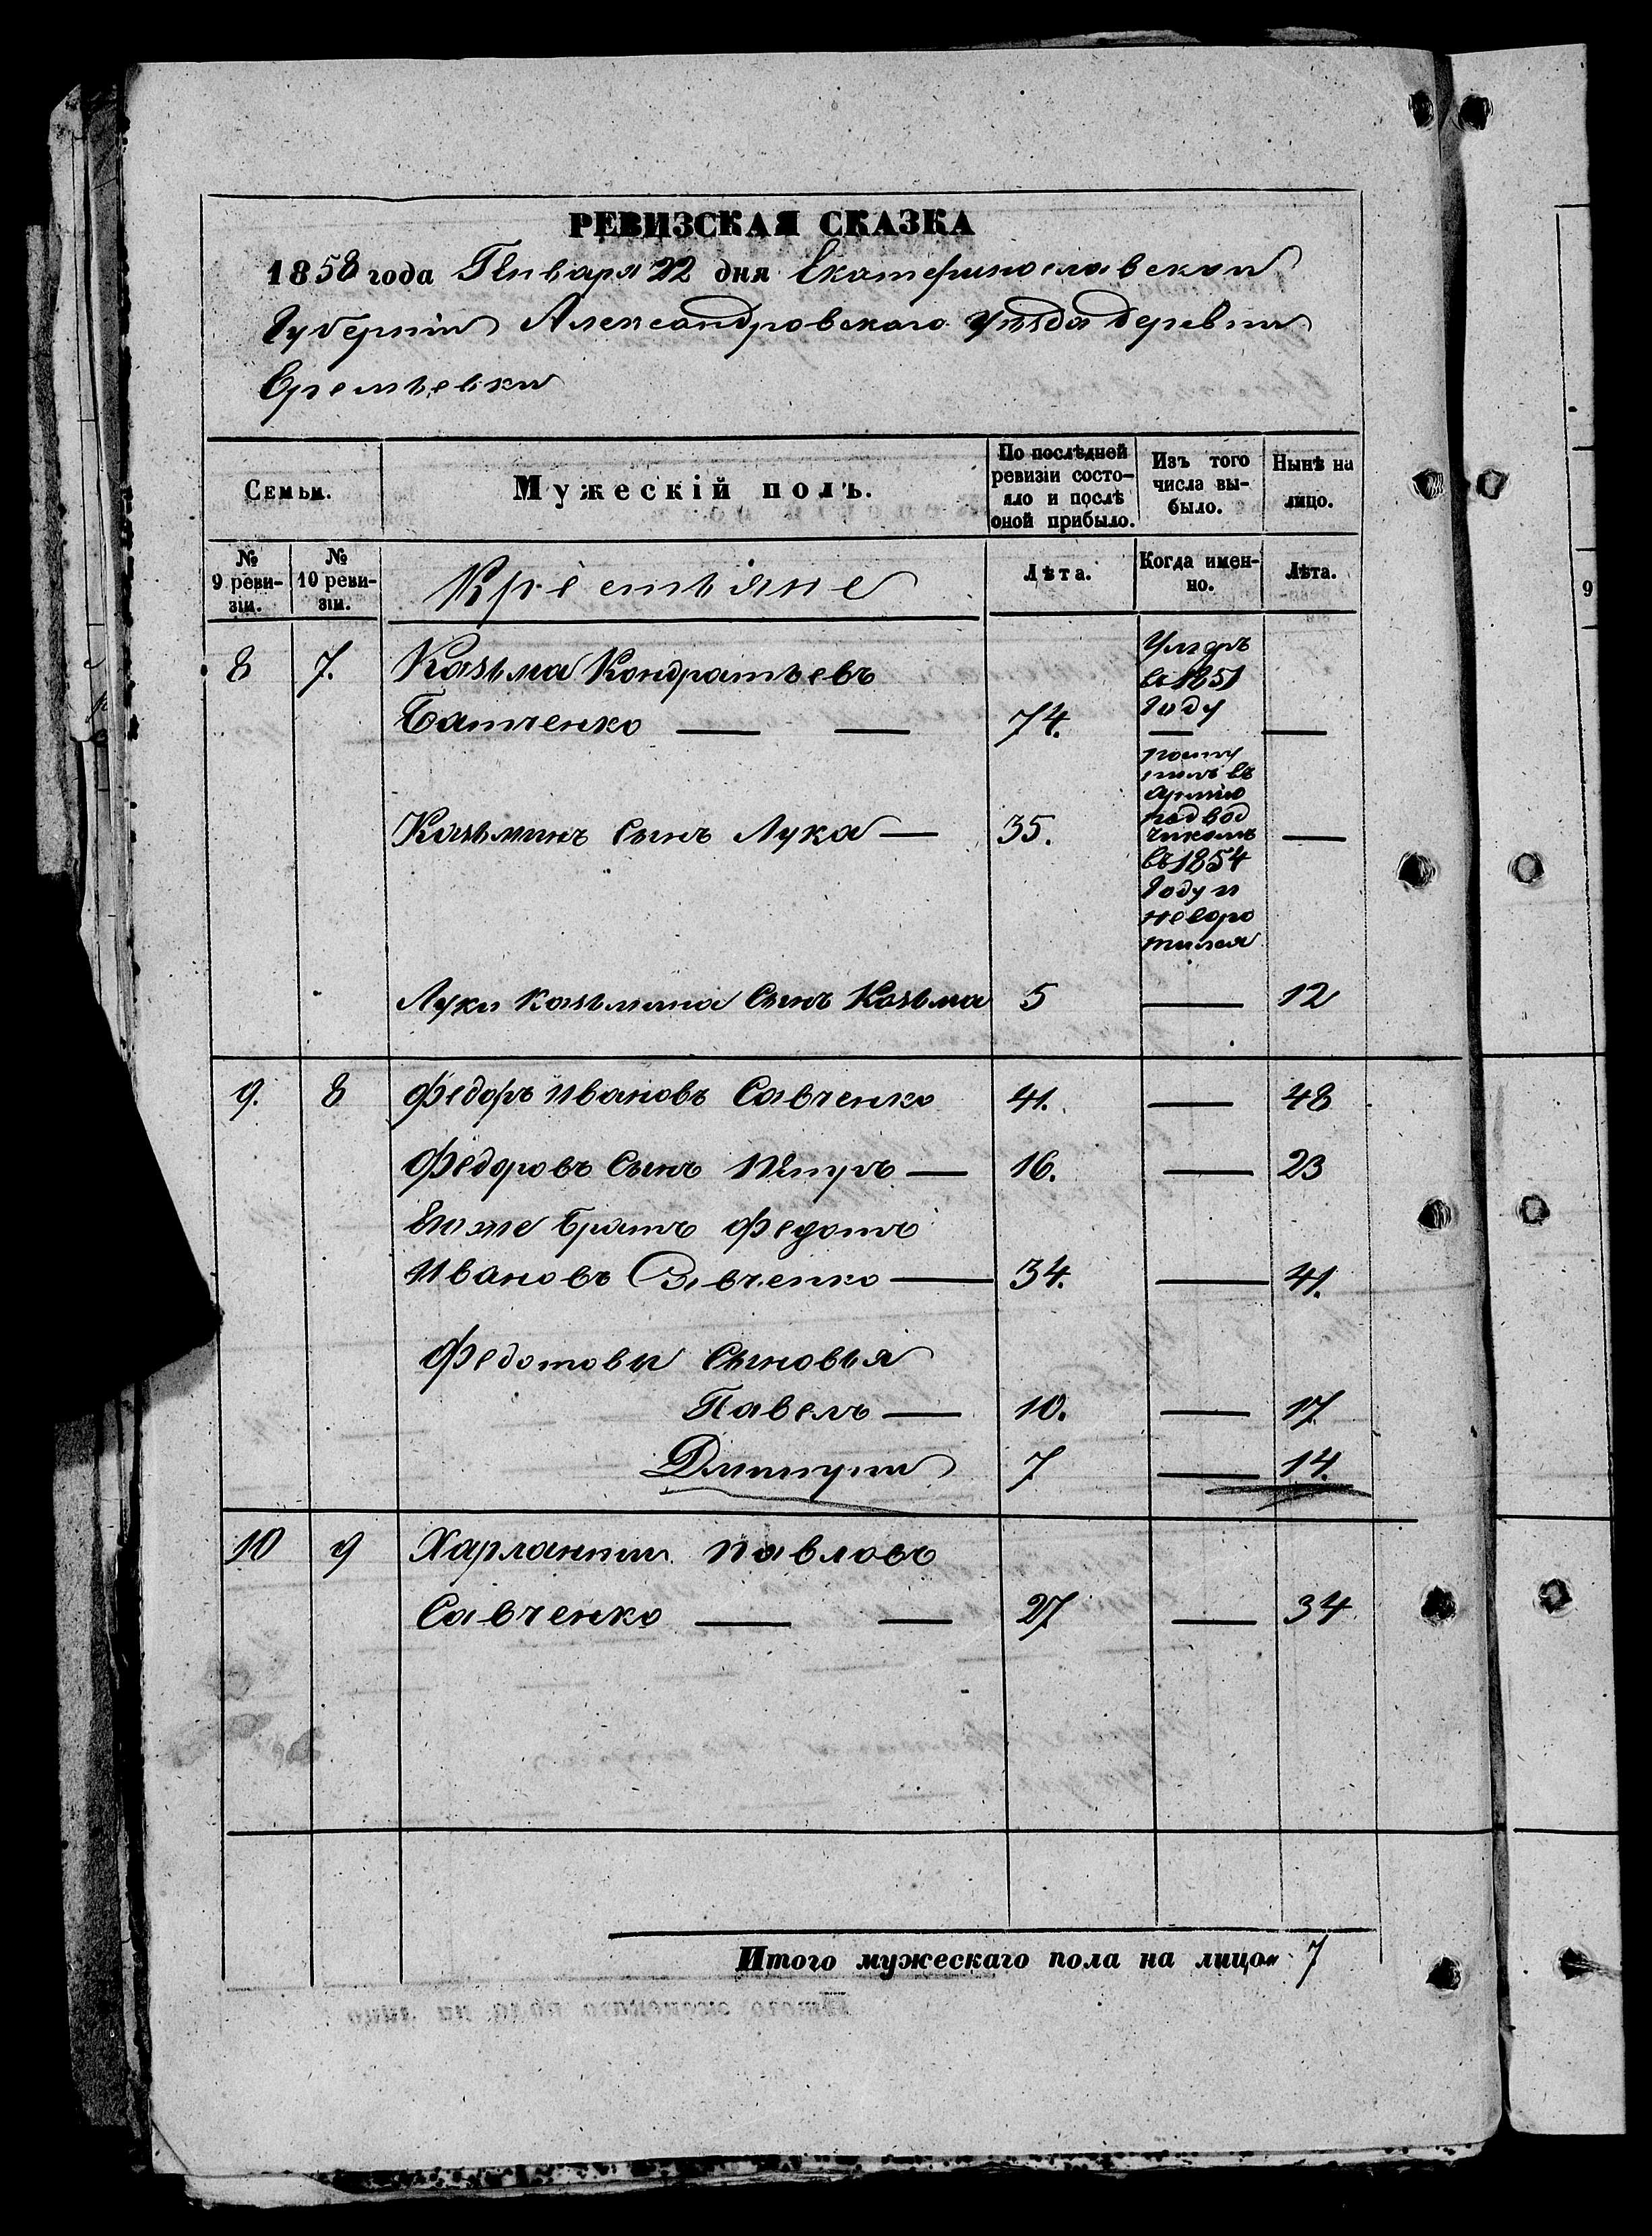 РЕВИЗСКАЯ СКАЗКА
1858 года Генваря 22 дня Екатеринославской
Губерніи Александровскаго уѣзда деревни
Еремѣевки
Семьи.
Мужескій полъ.
По послѣдней ревизіи состо-
яло и послѣ
оной прибыло.
Изъ того
числа вы-
было.
Нынѣ на
лицо.
№
9 реви-
зіи.
№
10 реви-
зіи.
Крестьяне
Лѣта.
Когда имен-
но.
Лѣта.
8 7. Козьма Кондратьевъ
Умеръ
въ 1851
Году
Батченко — — 74. — —
посту
пилъ въ
армію
подвод
чикомъ
въ 1854
Году и
неворо
тился
Козьминъ Сынъ Лука — 35. —
Луки Козьмина Сынъ Козьма 5 — 12
9. 8 Федоръ Ивановъ Савченко 41. — 48
Федоровъ Сынъ Петръ — 16. — 23
Его же Братъ Федотъ
Ивановъ Савченко — 34. — 41.
Федотовы Сыновья
Павелъ — 10. — 17
Дмитрий 7 — 14.
10 9 Харлампий Павловъ
Савченко — — 27 — 34
Итого мужескаго пола на лицо 7
9